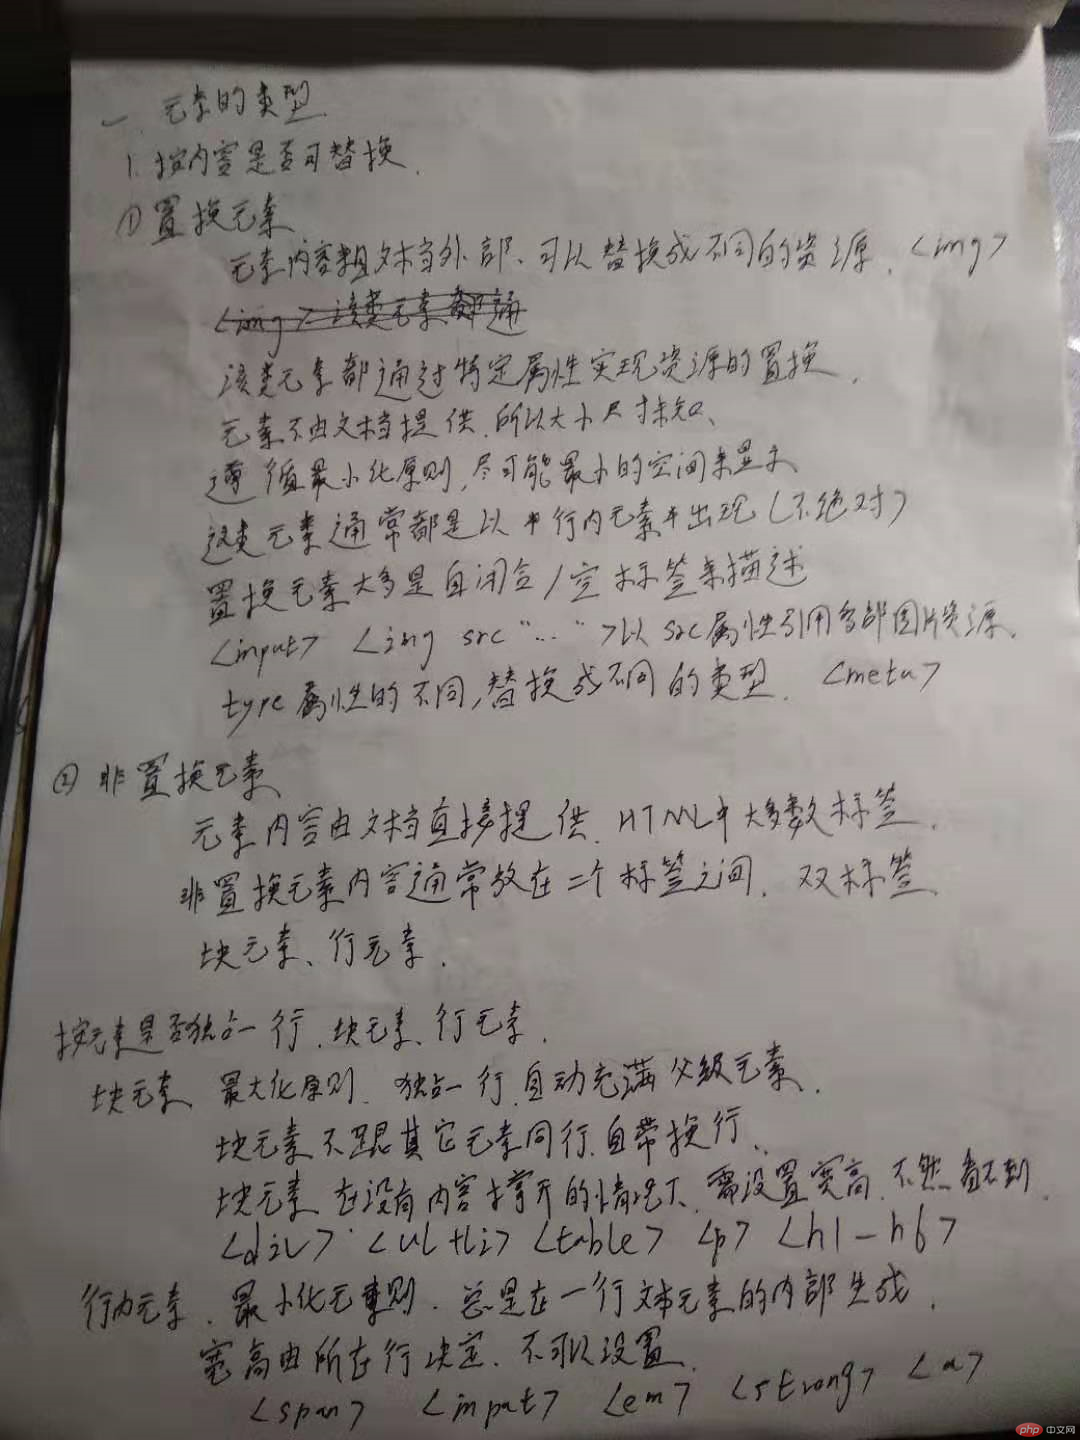 一、元素的类型
1. 按内容是否可替换.
① 置换元素
元素内容 文档外部、可以替换成不同的资源. <img>
<img> 该类元素都通
该类元素都通过特定属性实现资源的置换.
元素不由文档提供.所以大小尺寸未知、
遵循最小化原则,尽可能最小的空间来显示
这类元素通常都是以 行内元素 出现(不绝对)
置换元素大多是自闭合/空标签来描述
<input> <img src "..." >以src属性引用外部图片资源.
type属性的不同,替换成不同的类型. <meta>
② 非置换元素
元素内容由文档直接提供. HTML中大多数标签.
非置换元素内容通常放在二个标签之间. 双标签.
块元素、行元素.
按元素是否独占一行.块元素、行元素.
块元素 最大化原则. 独占一行.自动充满父级元素.
块元素不跟其它元素同行.自带换行.
块元素在没有内容撑开的情况下、需设置宽高.不然看不到.
<div>.<ul+li> <table> <p> <h1-h6>
行内元素. 最小化元素则. 总是在一行文本元素的内部生成.
宽高由所在行决定. 不可以设置.
<span> <input> <em> <strong> <a>
php 中文网